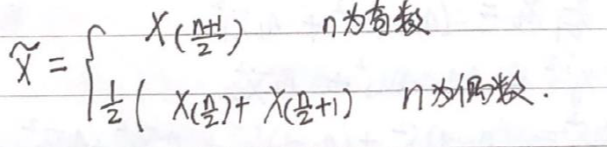 X(n+1/2) n为奇数
x̃ = {
1/2 ( X(n/2) + X(n/2+1) ) n为偶数.